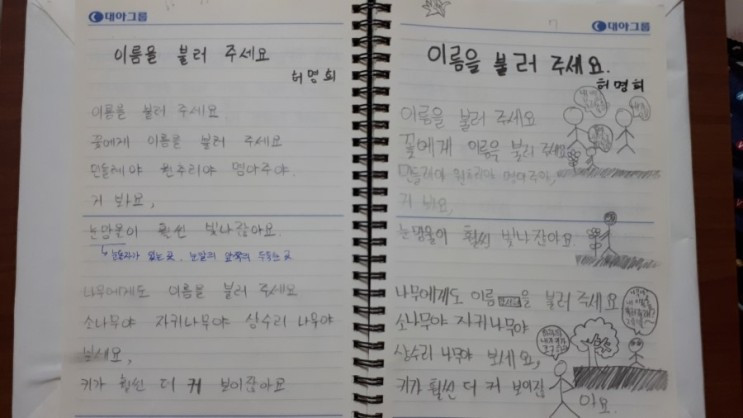 대아그룹
이름을 불러 주세요
허명희
이름을 불러 주세요
꽃에게 이름을 불러 주세요
민들레야 원추리야 명아주야.
거 봐요,
눈망울이 훨씬 빛나잖아요.
나무에게도 이름을 불러 주세요
소나무야 자귀나무야 상수리 나무야
보세요,
키가 훨씬 더 커 보이잖아요
대아그룹
이름을 불러 주세요.
허명희
이름을 불러 주세요
꽃에게 이름을 불러 주세요
민들레야 원추리야 명아주야,
거 봐요,
눈망울이 훨씬 빛나잖아요.
나무에게도 이름을 불러 주세요
소나무야 자귀나무야
상수리 나무야 보세요,
키가 훨씬 더 커 보이잖
아요.